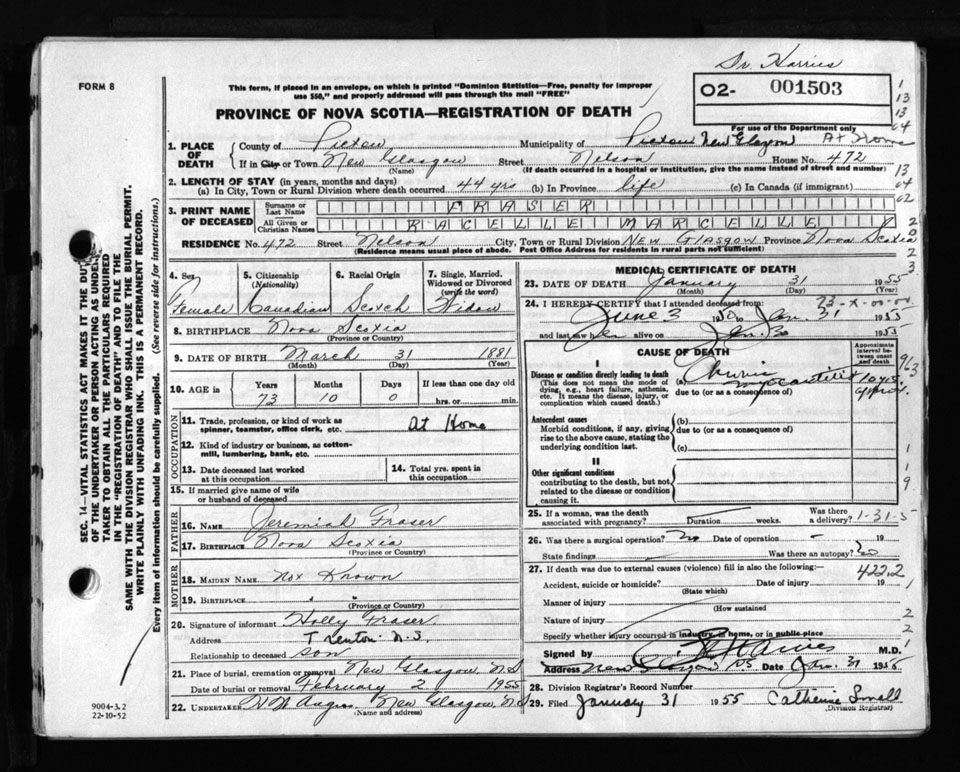 Dr. Harries
FORM 8
This form, if placed in an envelope, on which is printed "Dominion Statistics—Free, penalty for improper
use $50," and properly addressed will pass through the mail "FREE"
O2- 001503
PROVINCE OF NOVA SCOTIA—REGISTRATION OF DEATH
For use of the Department only
1. PLACE OF DEATH
County of Pictou Municipality of Pictou New Glasgow At Home
If in City or Town New Glasgow Street Nelson House No. 472
(Name) (If death occurred in a hospital or institution, give the name instead of street and number)
2. LENGTH OF STAY (in years, months and days)
(a) In City, Town or Rural Division where death occurred 44 yrs (b) In Province life (c) In Canada (if immigrant)
3. PRINT NAME OF DECEASED
Surname or Last Name FRASER
All Given or Christian Names RACELLE MARCELLE
RESIDENCE No. 472 Street Nelson City, Town or Rural Division NEW GLASGOW Province Nova Scotia
(Residence means usual place of abode. Post Office Address for residents in rural parts not sufficient)
4. Sex Female
5. Citizenship (Nationality) Canadian
6. Racial Origin Scotch
7. Single, Married, Widowed or Divorced (write the word) Widow
8. BIRTHPLACE Nova Scotia
(Province or Country)
9. DATE OF BIRTH March 31 1881
(Month) (Day) (Year)
10. AGE in Years Months Days If less than one day old
73 10 0 hrs. or min.
OCCUPATION
11. Trade, profession, or kind of work as spinner, teamster, office clerk, etc. At Home
12. Kind of industry or business, as cotton-mill, lumbering, bank, etc.
13. Date deceased last worked at this occupation
14. Total yrs. spent in this occupation
15. If married give name of wife or husband of deceased
FATHER
16. NAME Jeremiah Fraser
17. BIRTHPLACE Nova Scotia
(Province or Country)
MOTHER
18. MAIDEN NAME Not Known
19. BIRTHPLACE " "
(Province or Country)
20. Signature of informant Holly Fraser
Address Trenton N.S.
Relationship to deceased son
21. Place of burial, cremation or removal New Glasgow, N.S
Date of burial or removal February 2 1955
22. UNDERTAKER New Glasgow, N.S
(Name and address)
MEDICAL CERTIFICATE OF DEATH
23. DATE OF DEATH January 31 1955
(Month) (Day)
24. I HEREBY CERTIFY that I attended deceased from
June 3 1950 to Jan. 31 1955
and last saw her alive on Jan. 1955
CAUSE OF DEATH
Approximate interval between onset and death
I
Disease or condition directly leading to death
(This does not mean the mode of dying, e.g., heart failure, asthenia, etc. It means the disease, injury, or complication which caused death.)
(a) Chronic myocarditis 10 yrs approx.
due to (or as a consequence of)
Antecedent causes
Morbid conditions, if any, giving rise to the above cause, stating the underlying condition last.
(b)
due to (or as a consequence of)
(c)
II
Other significant conditions
contributing to the death, but not related to the disease or condition causing it.
25. If a woman, was the death associated with pregnancy? Duration weeks. Was there a delivery?
1-31-5
26. Was there a surgical operation? no Date of operation - 19
State findings Was there an autopsy? no
27. If death was due to external causes (violence) fill in also the following:
4222
Accident, suicide or homicide? Date of injury 19
(State which)
Manner of injury
(How sustained
Nature of injury
Specify whether injury occurred in industry, in home, or in public place
Signed by M.D.
Address New Glasgow NS Date Jan. 31 1955
28. Division Registrar's Record Number
29. Filed January 31 1955 Catherine Small
(Division Registrar)
SEC. 14—VITAL STATISTICS ACT MAKES IT THE DUTY
OF THE UNDERTAKER OR PERSON ACTING AS UNDER-
TAKER TO OBTAIN ALL THE PARTICULARS REQUIRED
IN THE "REGISTRATION OF DEATH" AND TO FILE THE
SAME WITH THE DIVISION REGISTRAR WHO SHALL ISSUE THE BURIAL PERMIT.
WRITE PLAINLY WITH UNFADING INK. THIS IS A PERMANENT RECORD.
Every item of information should be carefully supplied. (See reverse side for instructions.)
9004-3.2
22-10-52